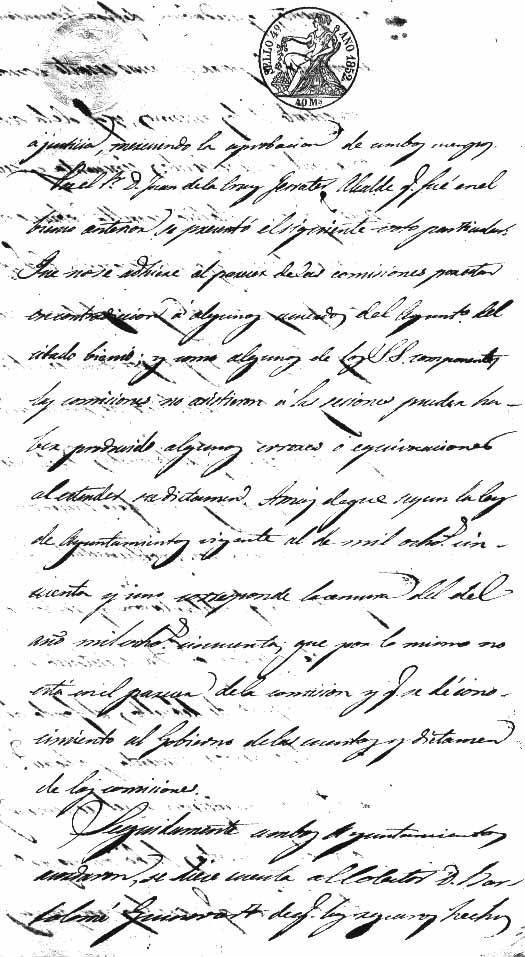 SELLO 4º AÑO 1852.
40 Ms
a justicia, mereciendo la aprobacion de ambos cuerpos.
Por el Sr. D. Juan de la Cruz Ferrater, Alcalde q. fué en el
bienio anterior, se presentó el siguiente voto particular.
Que no se adhiere al parecer de las comisiones por estar
en contradiccion á algunos acuerdos del Ayuntº. del
citado bienio; y como algunos de los SS. componentes
las comisiones no asistieron á las sesiones pueden ha-
ber producido algunos errores o equivocaciones
al estender su dictamen. Amas de que segun la ley
de Ayuntamientos vigente al de mil ochoº. cin-
cuenta y uno corresponde la censura del del
año mil ochoº. cincuenta; que por lo mismo no
está en el parecer de la comision y q. se dé cono-
cimiento al Gobierno de las cuentas y dictamen
de las comisiones.
Seguidamente ambos Ayuntamientos
acordaron, se diese cuenta al Colector D. Bar
tolomé de q. los seguros hechos